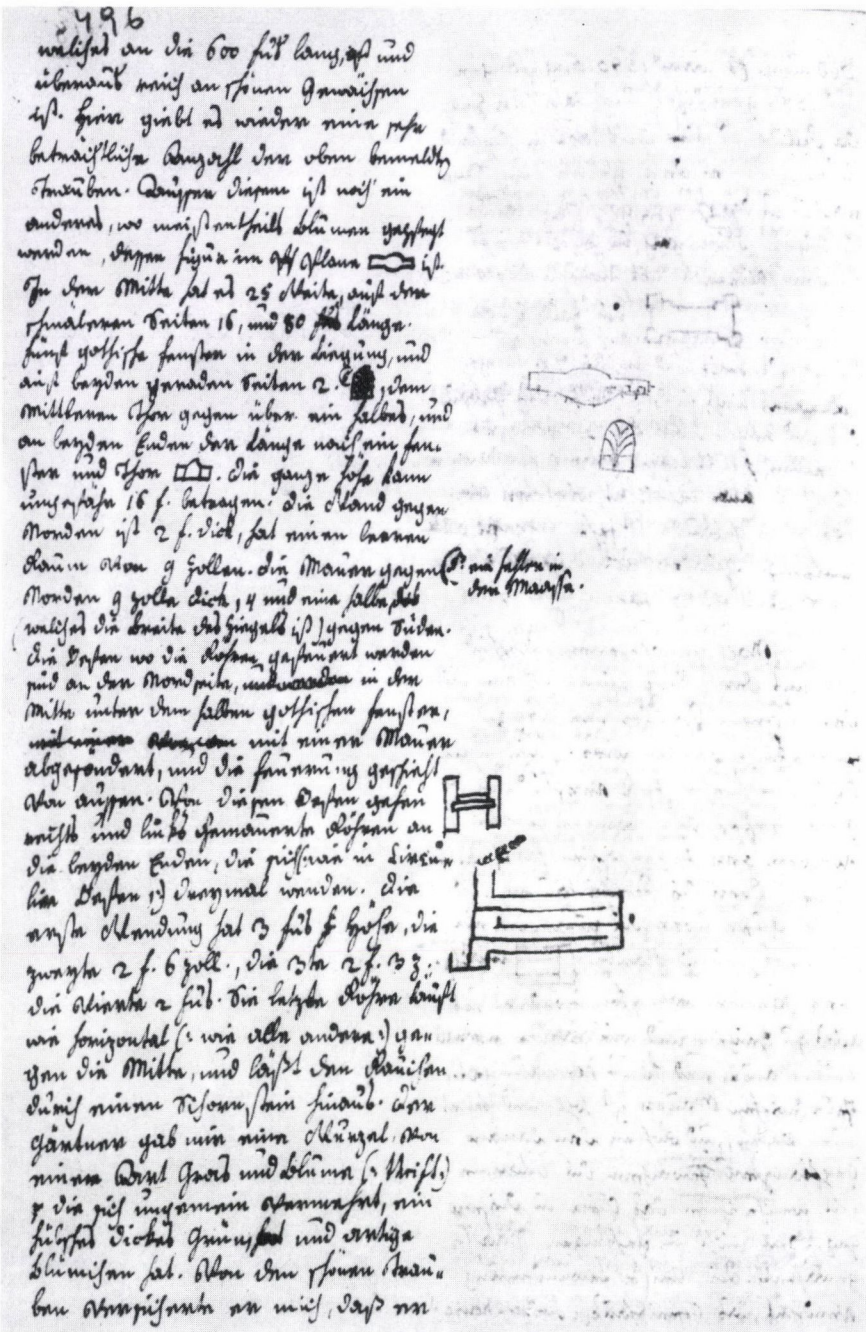 496
welches an die 600 fus lang, ist und
überaus reich an schönen Gewächsen
ist. Hier giebt es wieder eine sehr
beträchtliche Anzahl der oben bemeldten
Trauben. Ausser diesem ist noch ein
anderes, wo meistentheils Blumen gepflegt
werden, dessen figur im Plane ist.
In der Mitte hat es 25 Weite, auf den
schmäleren Seiten 16, und 80 Länge.
fünf gothische fenster in der Biegung, und
auf beyden geraden Seiten 2. dem
Mittleren Thor gegen über ein halbes, und
an beyden Enden der Länge nach ein fen-
ster und Thor . die ganze Höhe kann
ungefähr 16 f. betragen. die Wand gegen
Norden ist 2 f. dick, hat einen leeren
Raum von 9 Zollen. die Mauer gegen
ein fehler in
dem Maasse.
Norden 9 zolle dick, 4 und eine halbe,
welches die Breite des Ziegels ist) gegen Süden.
die Oefen wo die Röhren gefeuert werden
sind an der Nordseite, in der
Mitte unter dem halben gothischen fenster,
mit einer Mauer
abgesondert, und die feuerung geschieht
von aussen. Von diesen Oefen gehen
rechts und links gemauerte Röhren an
die beyden Enden, die sich wie in
Oefen :) dreymal wenden. die
erste Wendung hat 3 fus Höhe, die
zweyte 2 f. 6 zoll., die 3te 2 f. 3 z.
die vierte 2 fus. Die letzte Röhre lauft
wie horizontal (: wie alle andere :) ge-
gen die Mitte, und läßt den Rauchen
durch einen Schornstein hinaus. Der
Gärtner gab mir eine Wurzel von
einer Art Gras und Blume (: Thrift :)
die sich ungemein vermehrt, ein
hübsches dickes Grün, und artige
Blümchen hat. Von den schönen Trau-
ben versicherte er mich, daß er